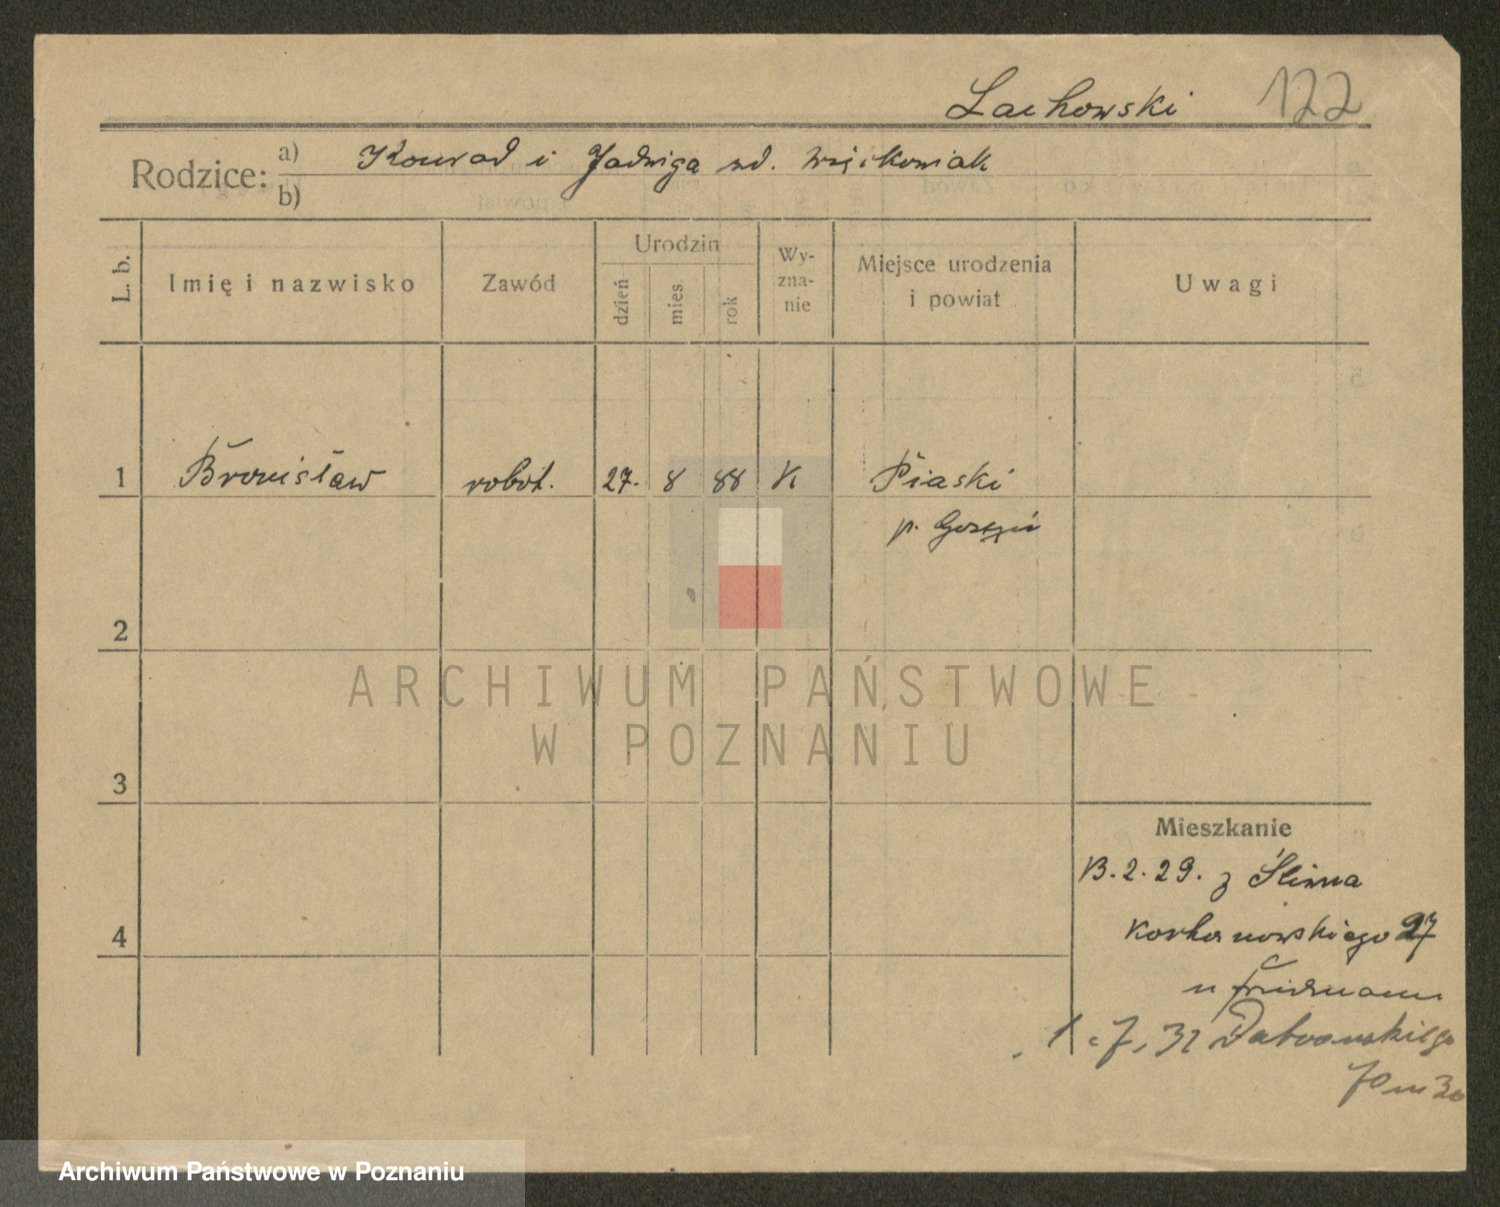 Lachowski 122
Rodzice: a) Konrad i Jadwiga
b)
L. b. Imię i nazwisko Zawód Urodzin dzień mies. rok Wy-zna-nie Miejsce urodzenia i powiat Uwagi
1 Bronisław robot. 27. 8 88 K Piaski
p. Gostyń
2
3
4
Mieszkanie
13.2.29. z Śliwna
27
u
1.7.32 Dabrowskiego
70 m 30
ARCHIWUM PAŃSTWOWE
W POZNANIU
Archiwum Państwowe w Poznaniu